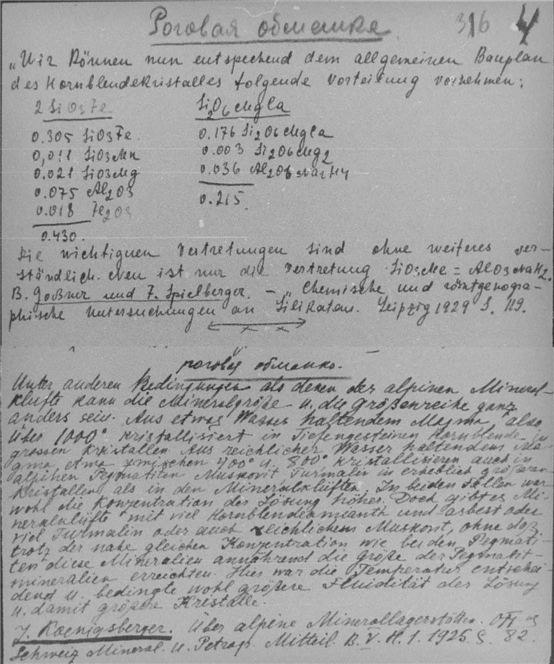 Роговая обманка
316 4
„Wir können nun entspechend dem allgemeinen Bauplan
des Hornblendekristalles folgende Vorteilung vornehmen:
2 SiO3Fe Si2O6MgCa
0.305 SiO3Fe 0.176 Si2O6MgCa
0,011 SiO3Mn 0.003 Si2O6Mg2
0.021 SiO3Mg 0.036 Al2O6
0.075 Al2O3 0.215.
0.018 Fe2O3
0.430.
Die wichtigen Vertretungen sind ohne weiteres ver-
ständlich. Neu ist nur die Vertretung SiO3Me = AlO3
B. Goßner und F. Spielberger. – „Chemische und röntgenogra-
phische Untersuchungen an Silikaten. Leipzig 1929 S. 119.
роговая обманка.
Unter anderen Bedingungen als denen der alpinen Mineral-
klüfte kann die Mineralgröße u. die Größenreihe ganz
anders sein. Aus etwas Wasser haltendem Magma, also
über 1000° kristallisiert in Tiefengesteinen Hornblende in
grossen Kristallen. Aus reichlicher Wasser haltendem Ma-
gma, etwa zwischen 400° u. 800° kristallisieren auch in
alpinen Pegmatiten Muskovit, Turmalin in erheblich größeren
Kristallen, als in den Mineralklüften. In beiden Fällen war
wohl die Konzentration der Lösung höher. Doch gibt es Mi-
neralklüfte mit viel Hornblendeamianth und asbest oder
viel Turmalin oder auch reichlichem Muskovit, ohne daß
trotz der nahe gleichen Konzentration wie bei den Pegmati-
ten diese Mineralien annährend die Größe der Pegmatit-
mineralien erreichten. Hier war die Temperatur entschei-
dend u. bedingte wohl größere Fluidität der Lösung
u. damit größere Kristalle.
J. Koenigsberger. Über alpine Minerallagerstätten.
Schweiz Mineral. u. Petrogr. Mitteil. B. V. H. 1. 1925 S. 82.